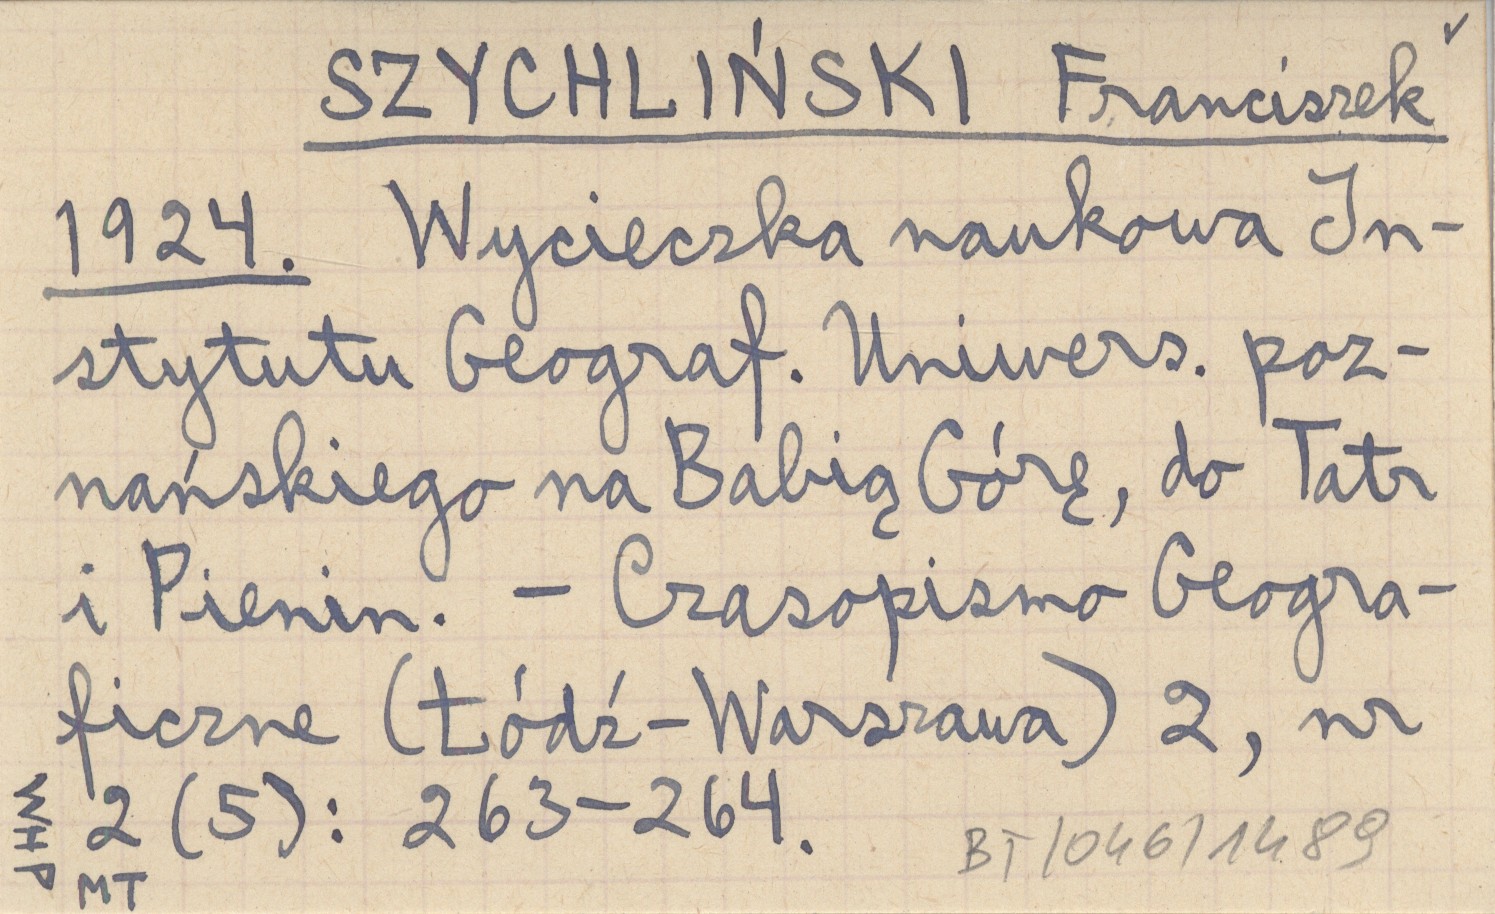 SZYCHLIŃSKI Franciszek
1924. Wycieczka naukowa In-
stytutu Geograf. Uniwers. poz-
nańskiego na Babią Górę, do Tatr
i Pienin. - Czasopismo Geogra-
ficzne (Łódź-Warszawa) 2, nr
2 (5): 263-264.
WHP
MT
BT/046/1489